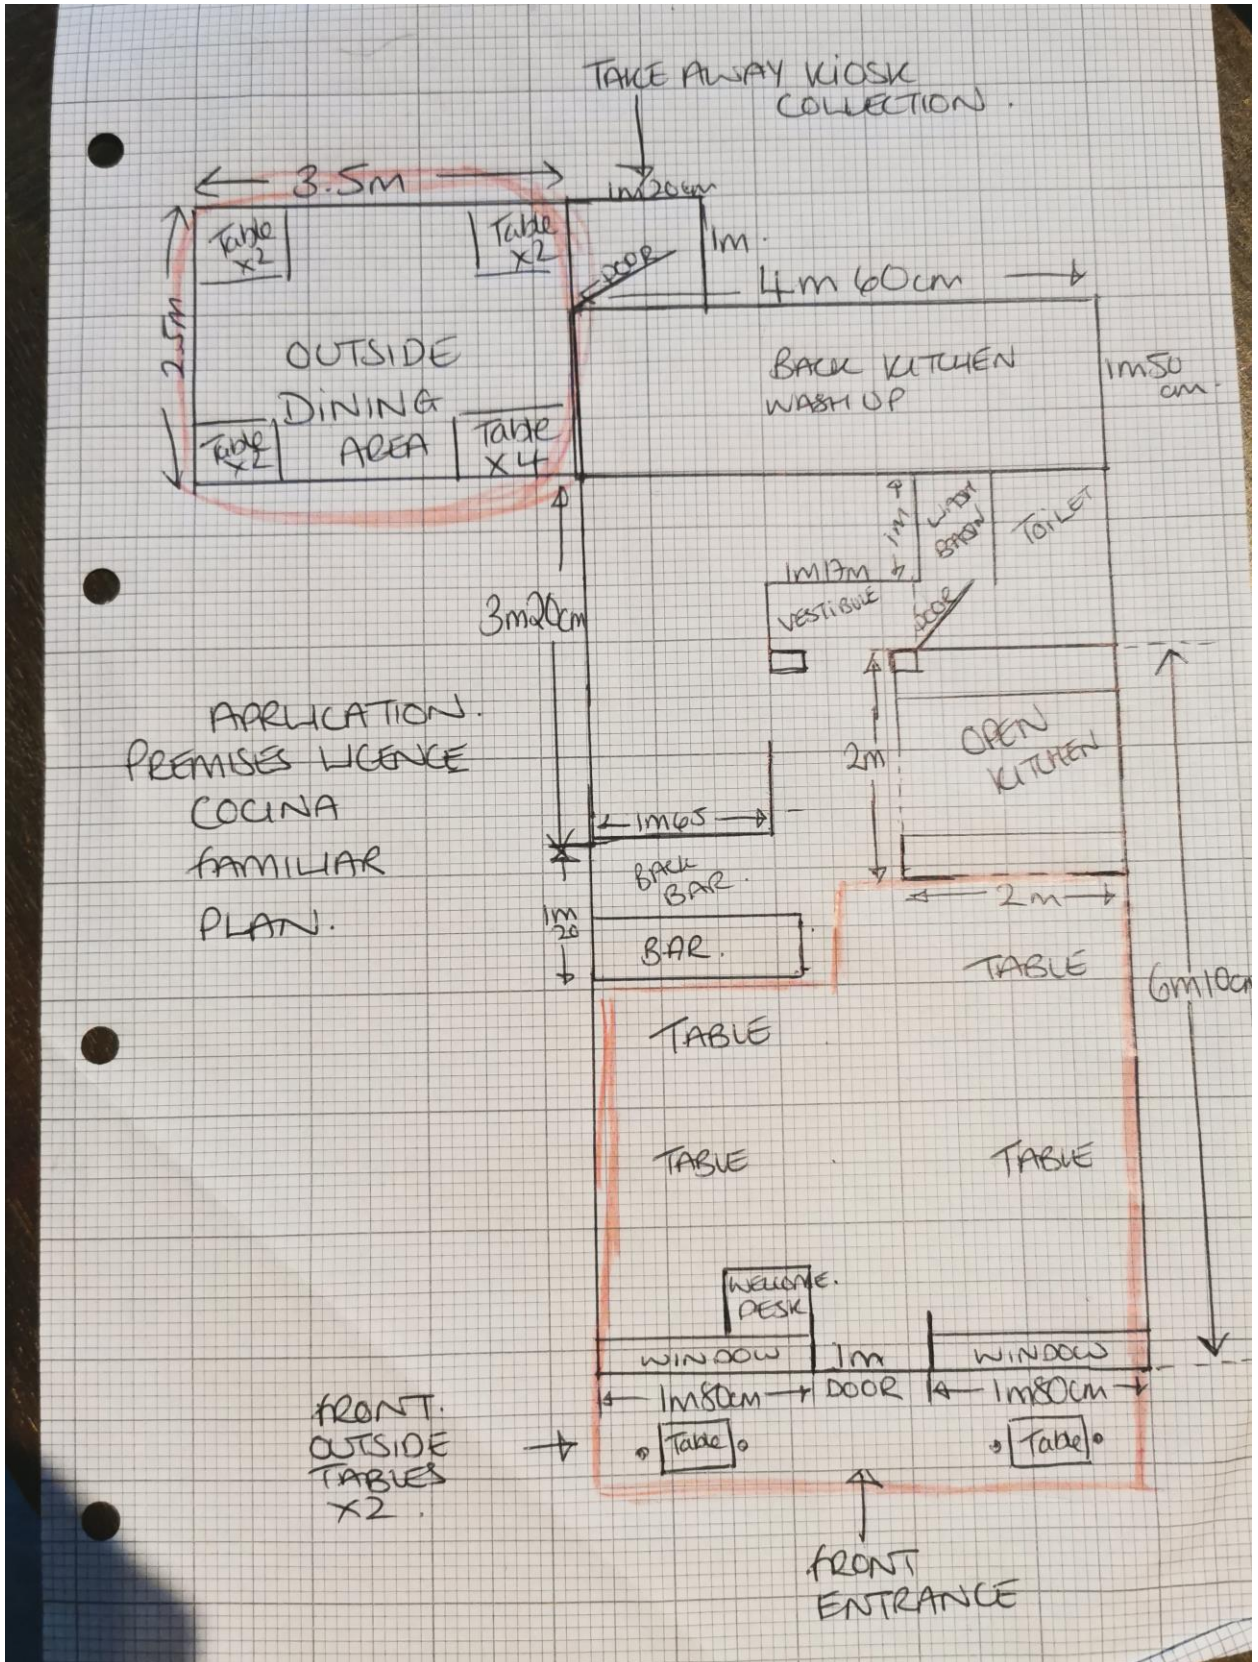 TAKE AWAY KIOSK
COLLECTION.
3.5m
1m20cm
Table
x2
Table
x2
1m.
DOOR
4m 60cm
2.5m
OUTSIDE
DINING
AREA
BACK KITCHEN
WASH UP
1m50
cm.
Table
x2
Table
x4
1m
WASH
BASIN
TOILET
1m17m
VESTIBULE
DOOR
3m20cm
APPLICATION.
PREMISES LICENCE
COCINA
FAMILIAR
PLAN.
2m
OPEN
KITCHEN
1m65
BACK
BAR.
2m
1m
20
BAR.
TABLE
6m10cm
TABLE
TABLE
TABLE
WELCOME.
DESK
WINDOW
1m
DOOR
WINDOW
1m80cm
1m80cm
FRONT.
OUTSIDE
TABLES
x2.
Table
Table
FRONT
ENTRANCE